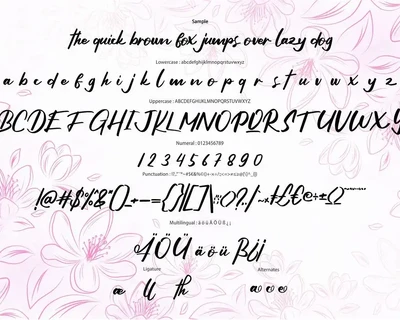 Sample
the quick brown fox jumps over lazy dog
Lowercase : abcdefghijklmnopqrstuvwxyz
a b c d e f g h i j k l m n o p q r s t u v w x y z
Uppercase : ABCDEFGHIJKLMNOPQRSTUVWXYZ
BCDEFGHIJKLMNOPQRSTUVWXY
Numeral : 0123456789
1 2 3 4 5 6 7 8 9 0
Punctuation :
!@#$%&
Multilingual : ä ö ü Ä Ö Ü ß ¡ ¿
Ä Ö Ü ä ö ü
Ligature Alternates
th